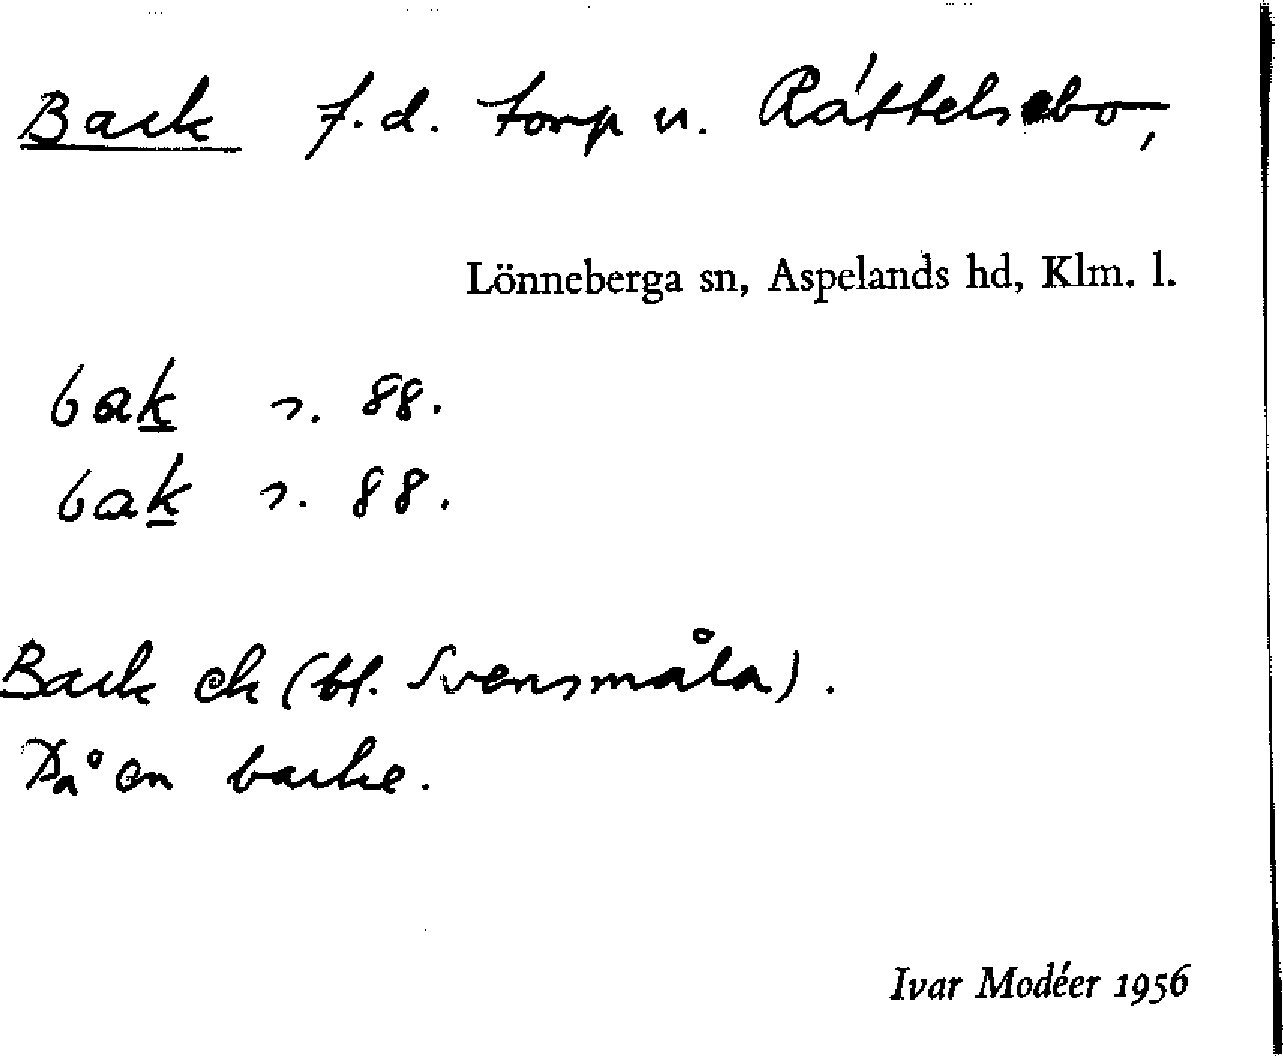 Back f.d. torp u. Råttelsebo,
Lönneberga sn, Aspelands hd, Klm. l.
bak s. 88.
bak s. 88.
Back ek (bl. Svensmåla).
På en backe.
Ivar Modéer 1956